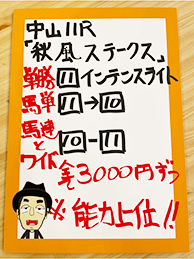 中山11R
「秋風ステークス」
単勝 11 インテンスライト
馬単 11→10
馬連とワイド 10-11
全て3000円ずつ
※能力上位!!